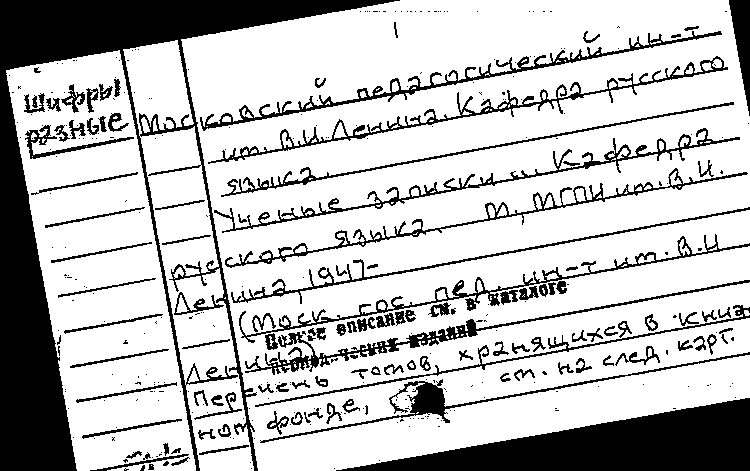 1
Шифры
разные
Московский педагогический ин-т
им. В.И. Ленина. Кафедра русского
языка.
Ученые записки ... Кафедра
русского языка. М., МГПИ им. В.И.
Ленина, 1947-
(Моск. гос. пед. ин-т им. В.И
Ленина)
Полное описание см. в каталоге
периодических изданий
Перечень томов, хранящихся в книж-
ном фонде, см. на след. карт.